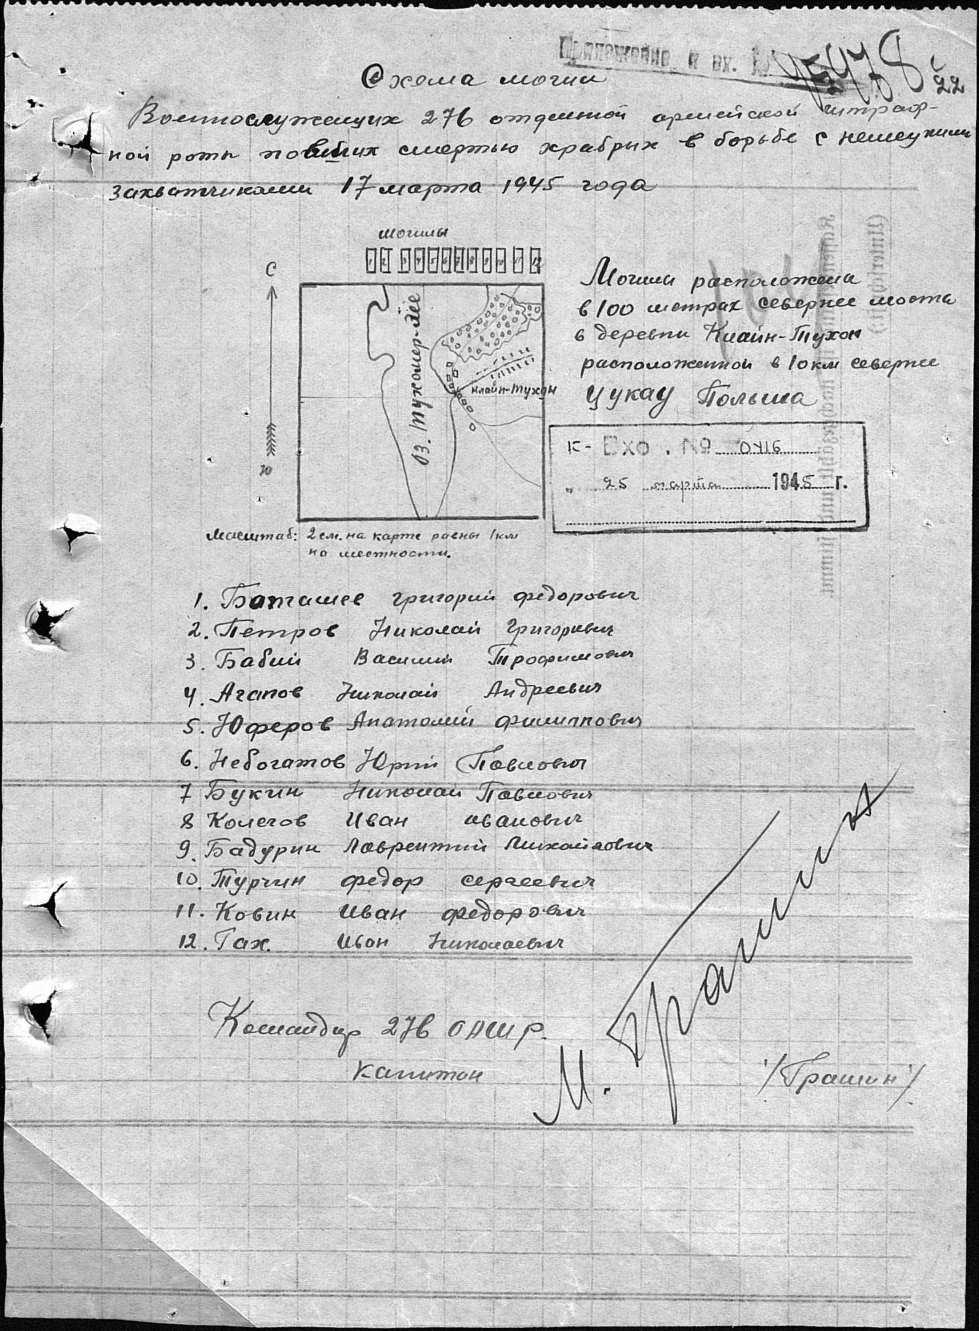 Приложение к вх. №
22
Схема могил
Военнослужащих 276 отдельной армейской штраф-
ной роты павших смертью храбрых в борьбе с немецкими
захватчиками 17 марта 1945 года
могилы
С
Ю
оз. Тухомер-Зее
Клайн-Тухом
Могилы расположены
в 100 метрах севернее моста
в деревни Клайн-Тухом
расположенной в 10 км севернее
Цукау Польша
К- Вхо. № 0416
" 25 марта 1945 г.
Масштаб: 2 см. на карте равны 1 км
на местности.
1. Баташев Григорий Федорович
2. Петров Николай Григорьевич
3. Бабий Василий Трофимович
4. Агапов Николай Андреевич
5. Юферов Анатолий Филиппович
6. Небогатов Юрий Павлович
7 Букин Николай Павлович
8 Колегов Иван Иванович
9. Бадурин Лаврентий Михайлович
10. Турчин Федор Сергеевич
11. Ковин Иван Федорович
12. Гах. Иван Николаевич
Командир 276 ОАШР.
капитан
М. Грашин
/Грашин/